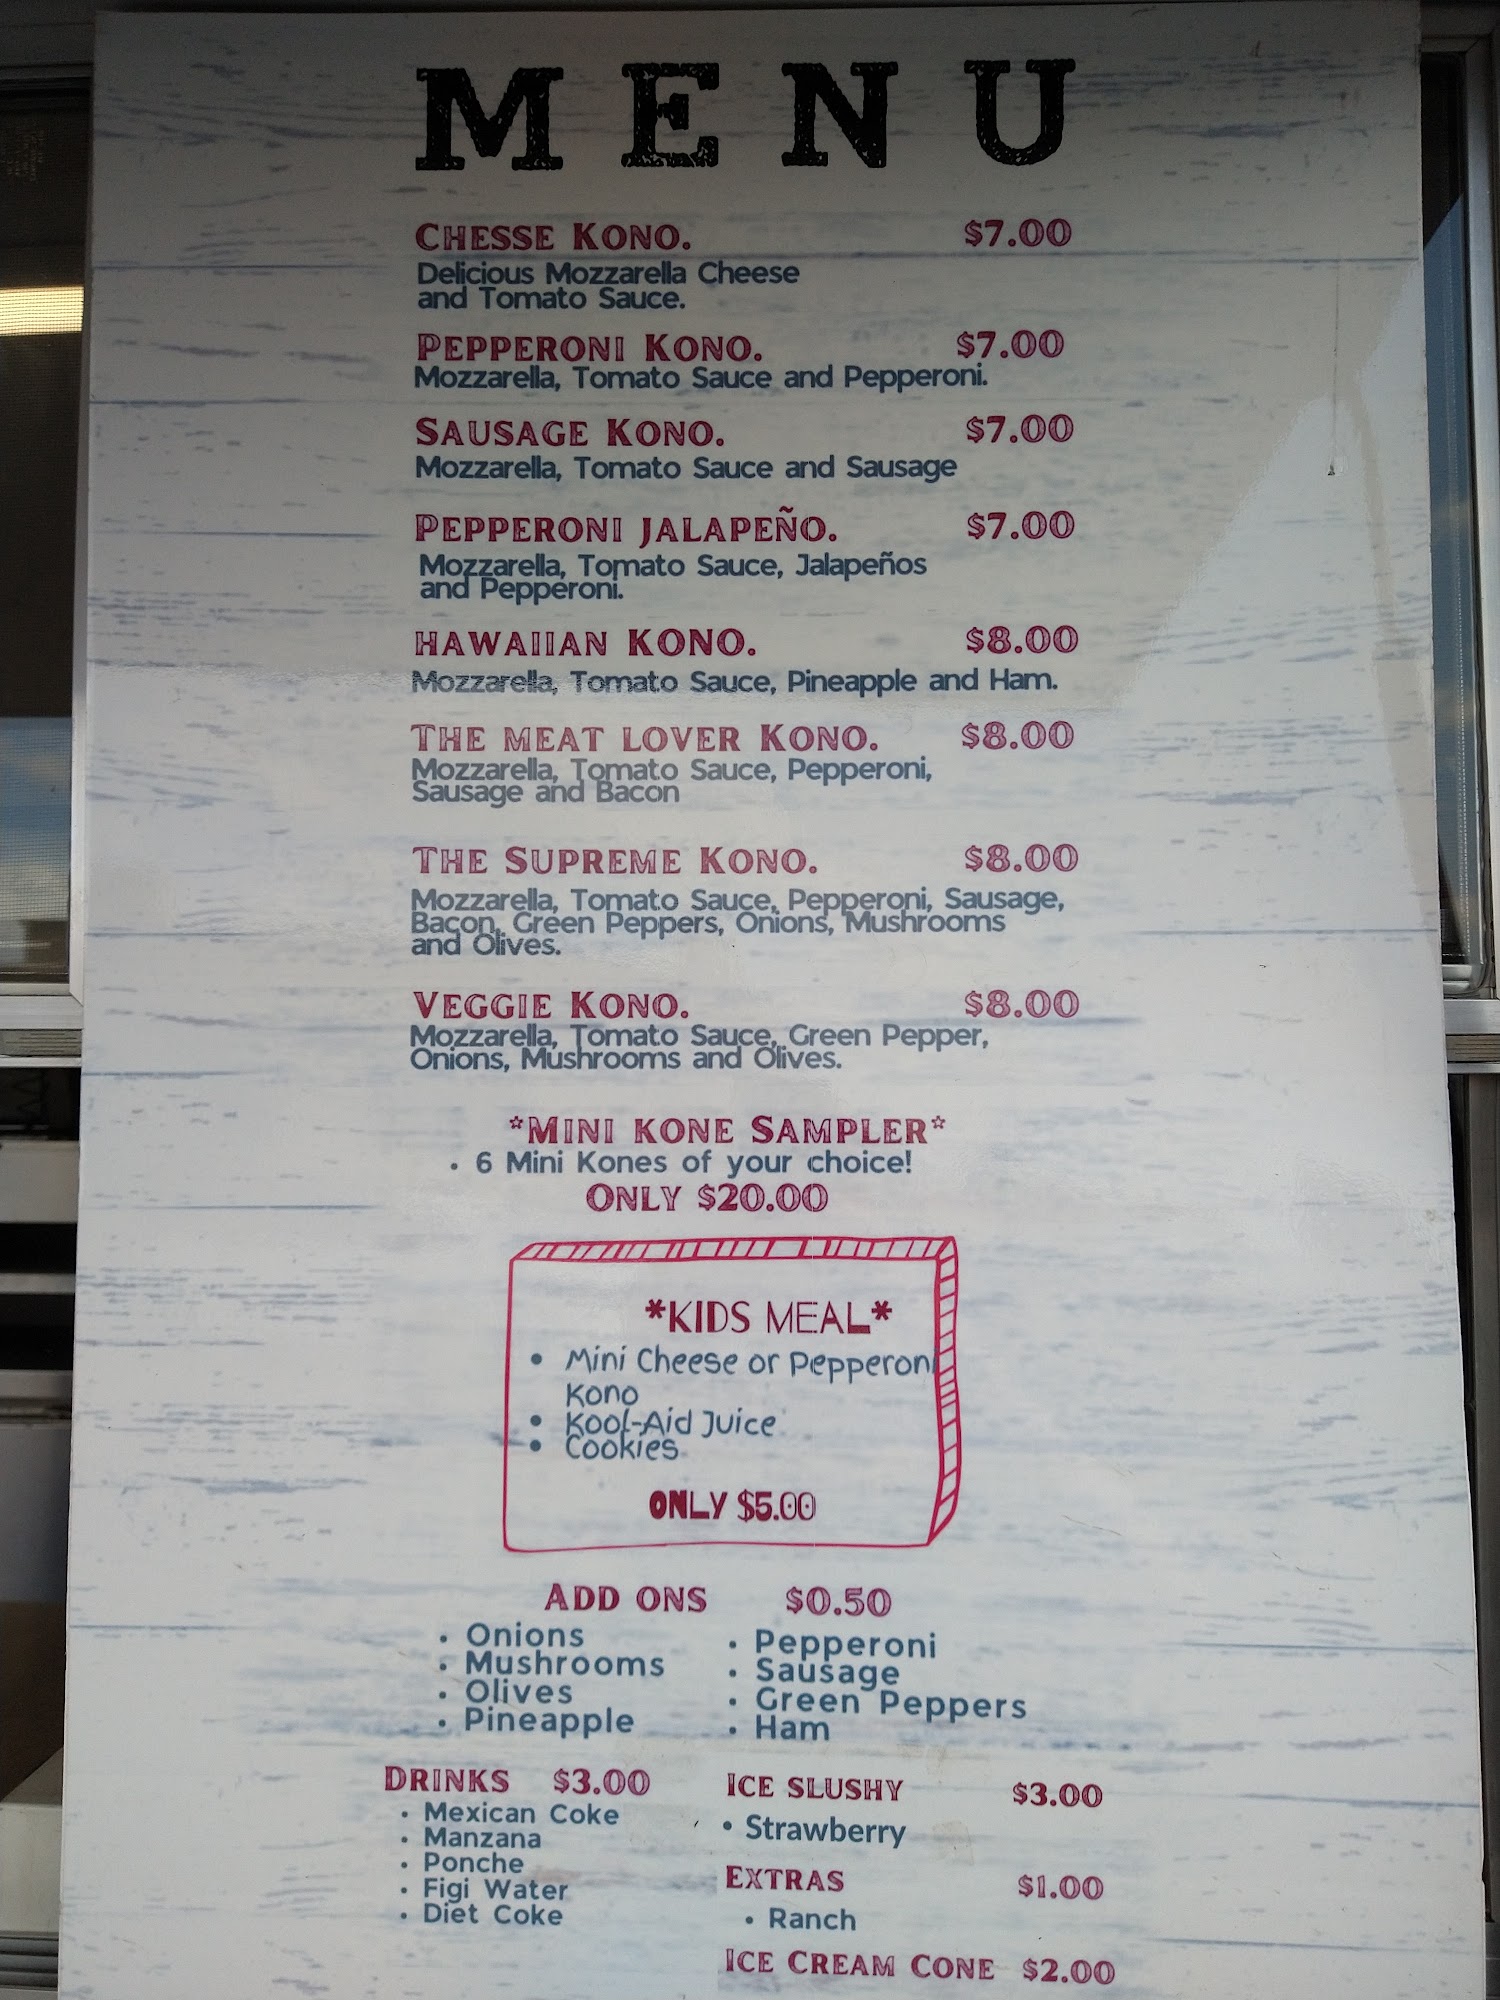 MENU
CHESSE KONO. $7.00
Delicious Mozzarella Cheese
and Tomato Sauce.
PEPPERONI KONO. $7.00
Mozzarella, Tomato Sauce and Pepperoni.
SAUSAGE KONO. $7.00
Mozzarella, Tomato Sauce and Sausage
PEPPERONI JALAPEÑO. $7.00
Mozzarella, Tomato Sauce, Jalapeños
and Pepperoni.
HAWAIIAN KONO. $8.00
Mozzarella, Tomato Sauce, Pineapple and Ham.
THE MEAT LOVER KONO. $8.00
Mozzarella, Tomato Sauce, Pepperoni,
Sausage and Bacon
THE SUPREME KONO. $8.00
Mozzarella, Tomato Sauce, Pepperoni, Sausage,
Bacon, Green Peppers, Onions, Mushrooms
and Olives.
VEGGIE KONO. $8.00
Mozzarella, Tomato Sauce, Green Pepper,
Onions, Mushrooms and Olives.
*MINI KONE SAMPLER*
• 6 Mini Kones of your choice!
ONLY $20.00
*KIDS MEAL*
• Mini Cheese or Pepperoni
Kono
• Kool-Aid Juice
• Cookies
ONLY $5.00
ADD ONS $0.50
• Onions
• Mushrooms
• Olives
• Pineapple
• Pepperoni
• Sausage
• Green Peppers
• Ham
DRINKS $3.00
• Mexican Coke
• Manzana
• Ponche
• Figi Water
• Diet Coke
ICE SLUSHY $3.00
• Strawberry
EXTRAS $1.00
• Ranch
ICE CREAM CONE $2.00